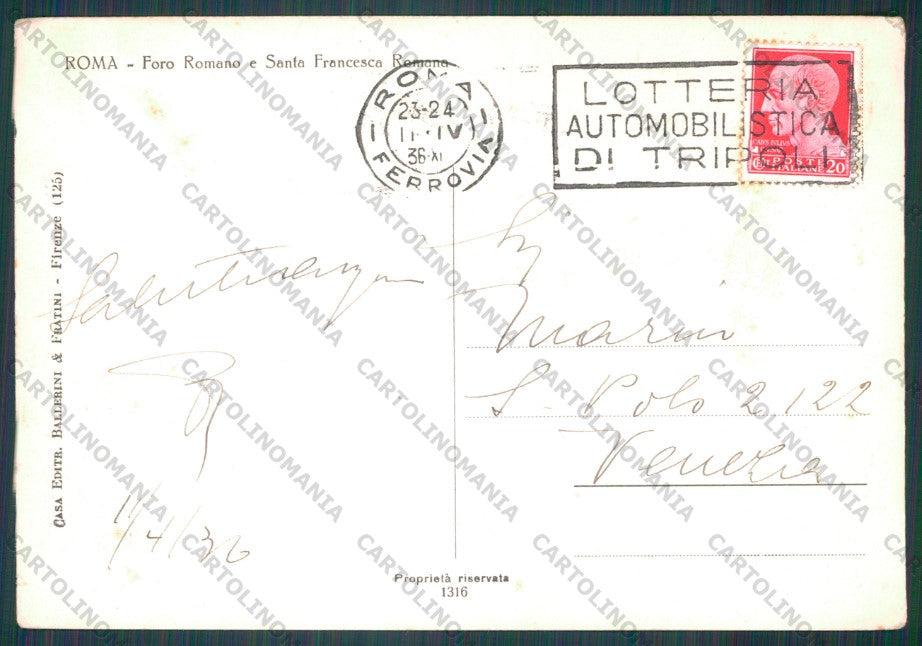 ROMA - Foro Romano e Santa Francesca Romana
ROMA
23-24
36-XI
FERROVIA
LOTTERIA
AUTOMOBILISTICA
DI TRIPOLI
POSTE
ITALIANE
20
CASA EDITR. BALLERINI & FRATINI - Firenze (125)
11/4/36
Marin
S. Polo 2122
Venezia
Proprietà riservata
1316
CARTOLINOMANIA